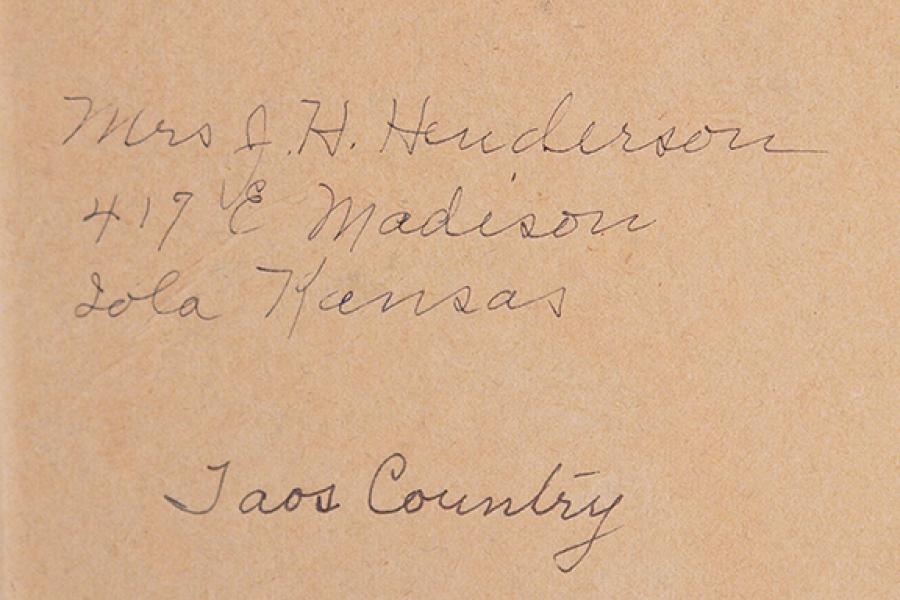 Mrs J. H. Henderson
417 E Madison
Iola Kansas
Taos Country